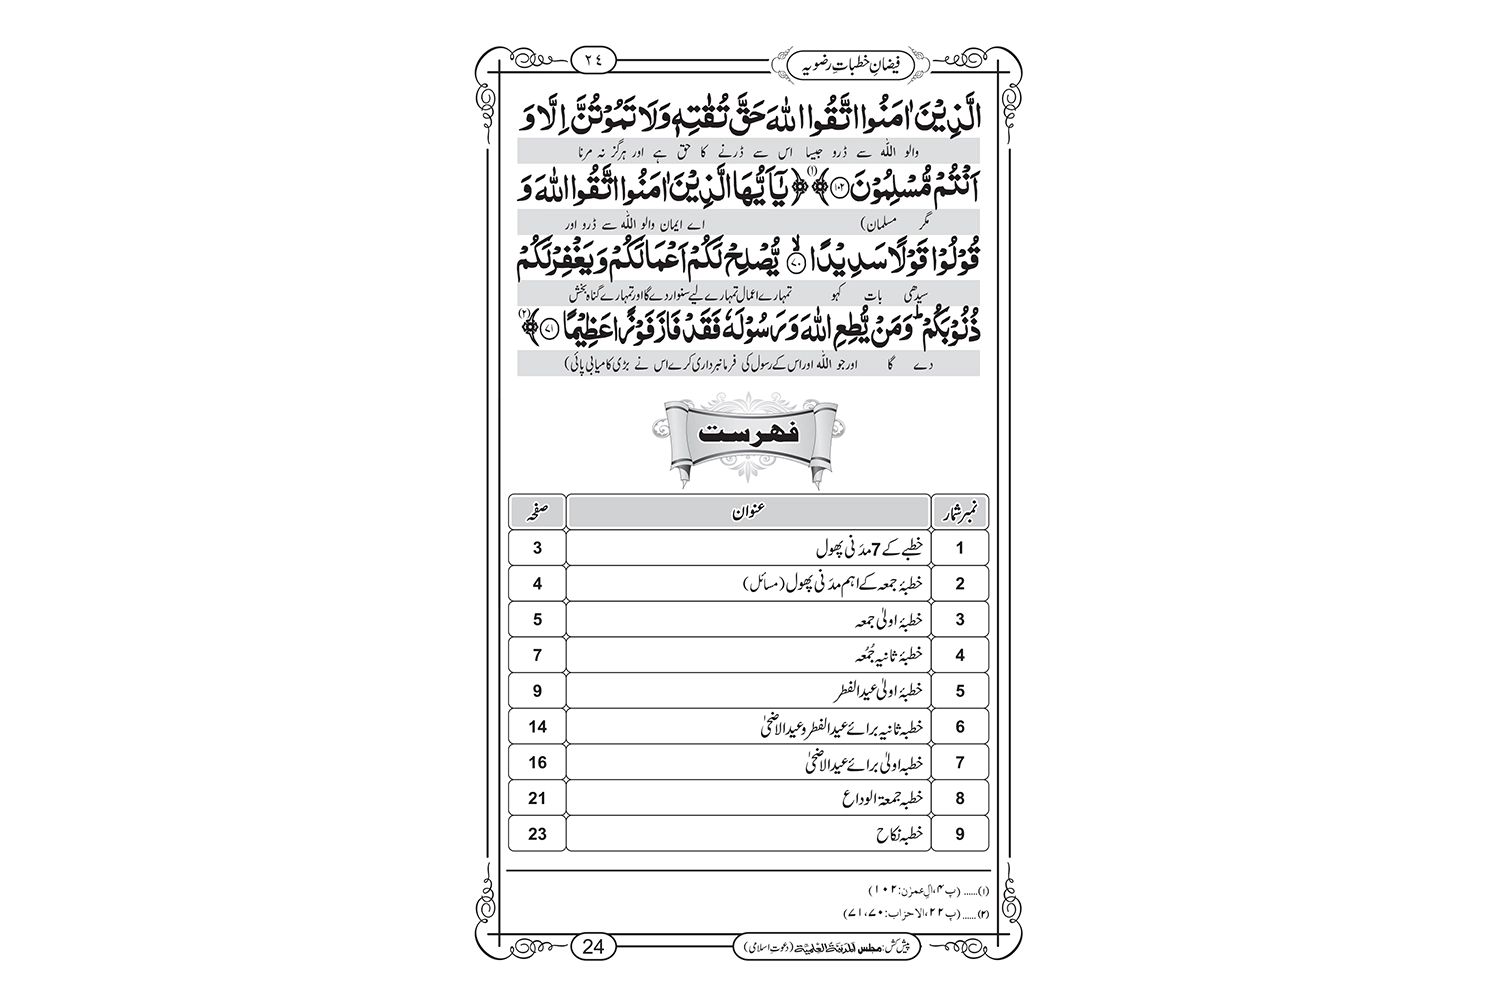 فیضانِ خطباتِ رضویہ
٢٤
الَّذِیْنَ اٰمَنُوا اتَّقُوا اللّٰهَ حَقَّ تُقٰتِهٖ وَ لَا تَمُوْتُنَّ اِلَّا وَ
والو اللّٰه سے ڈرو جیسا اس سے ڈرنے کا حق ہے اور ہرگز نہ مرنا
اَنْتُمْ مُّسْلِمُوْنَ ﴿۱۰۲﴾ ﴾(۱) ﴿ یٰۤاَیُّهَا الَّذِیْنَ اٰمَنُوا اتَّقُوا اللّٰهَ وَ
مگر مسلمان) اے ایمان والو اللّٰه سے ڈرو اور
قُوْلُوْا قَوْلًا سَدِیْدًا ﴿ۙ۷۰﴾ یُّصْلِحْ لَكُمْ اَعْمَالَكُمْ وَ یَغْفِرْ لَكُمْ
سیدھی بات کہو تمہارے اعمال تمہارے لیے سنوار دے گا اور تمہارے گناہ بخش
ذُنُوْبَكُمْ ؕ وَ مَنْ یُّطِعِ اللّٰهَ وَ رَسُوْلَهٗ فَقَدْ فَازَ فَوْزًا عَظِیْمًا ﴿۷۱﴾ ﴾(۲)
دے گا اور جو اللّٰه اور اس کے رسول کی فرمانبرداری کرے اس نے بڑی کامیابی پائی)
فہرست
نمبر شمار عنوان صفحہ
1 خطبے کے 7 مدَنی پھول 3
2 خطبۂ جمعہ کے اہم مدَنی پھول (مسائل) 4
3 خطبۂ اولیٰ جمعہ 5
4 خطبۂ ثانیہ جُمُعہ 7
5 خطبۂ اولیٰ عید الفطر 9
6 خطبہ ثانیہ برائے عید الفطر و عید الاضحیٰ 14
7 خطبہ اولیٰ برائے عید الاضحیٰ 16
8 خطبہ جمعۃ الوداع 21
9 خطبہ نکاح 23
(۱)...... (پ۴، اٰل عمرٰن: ۱۰۲)
(۲)...... (پ۲۲، الاحزاب: ۷۰، ۷۱)
پیش کش: مجلس اَلْمَدِیْنَۃُ الْعِلْمِیَّۃ (دعوتِ اسلامی)
24